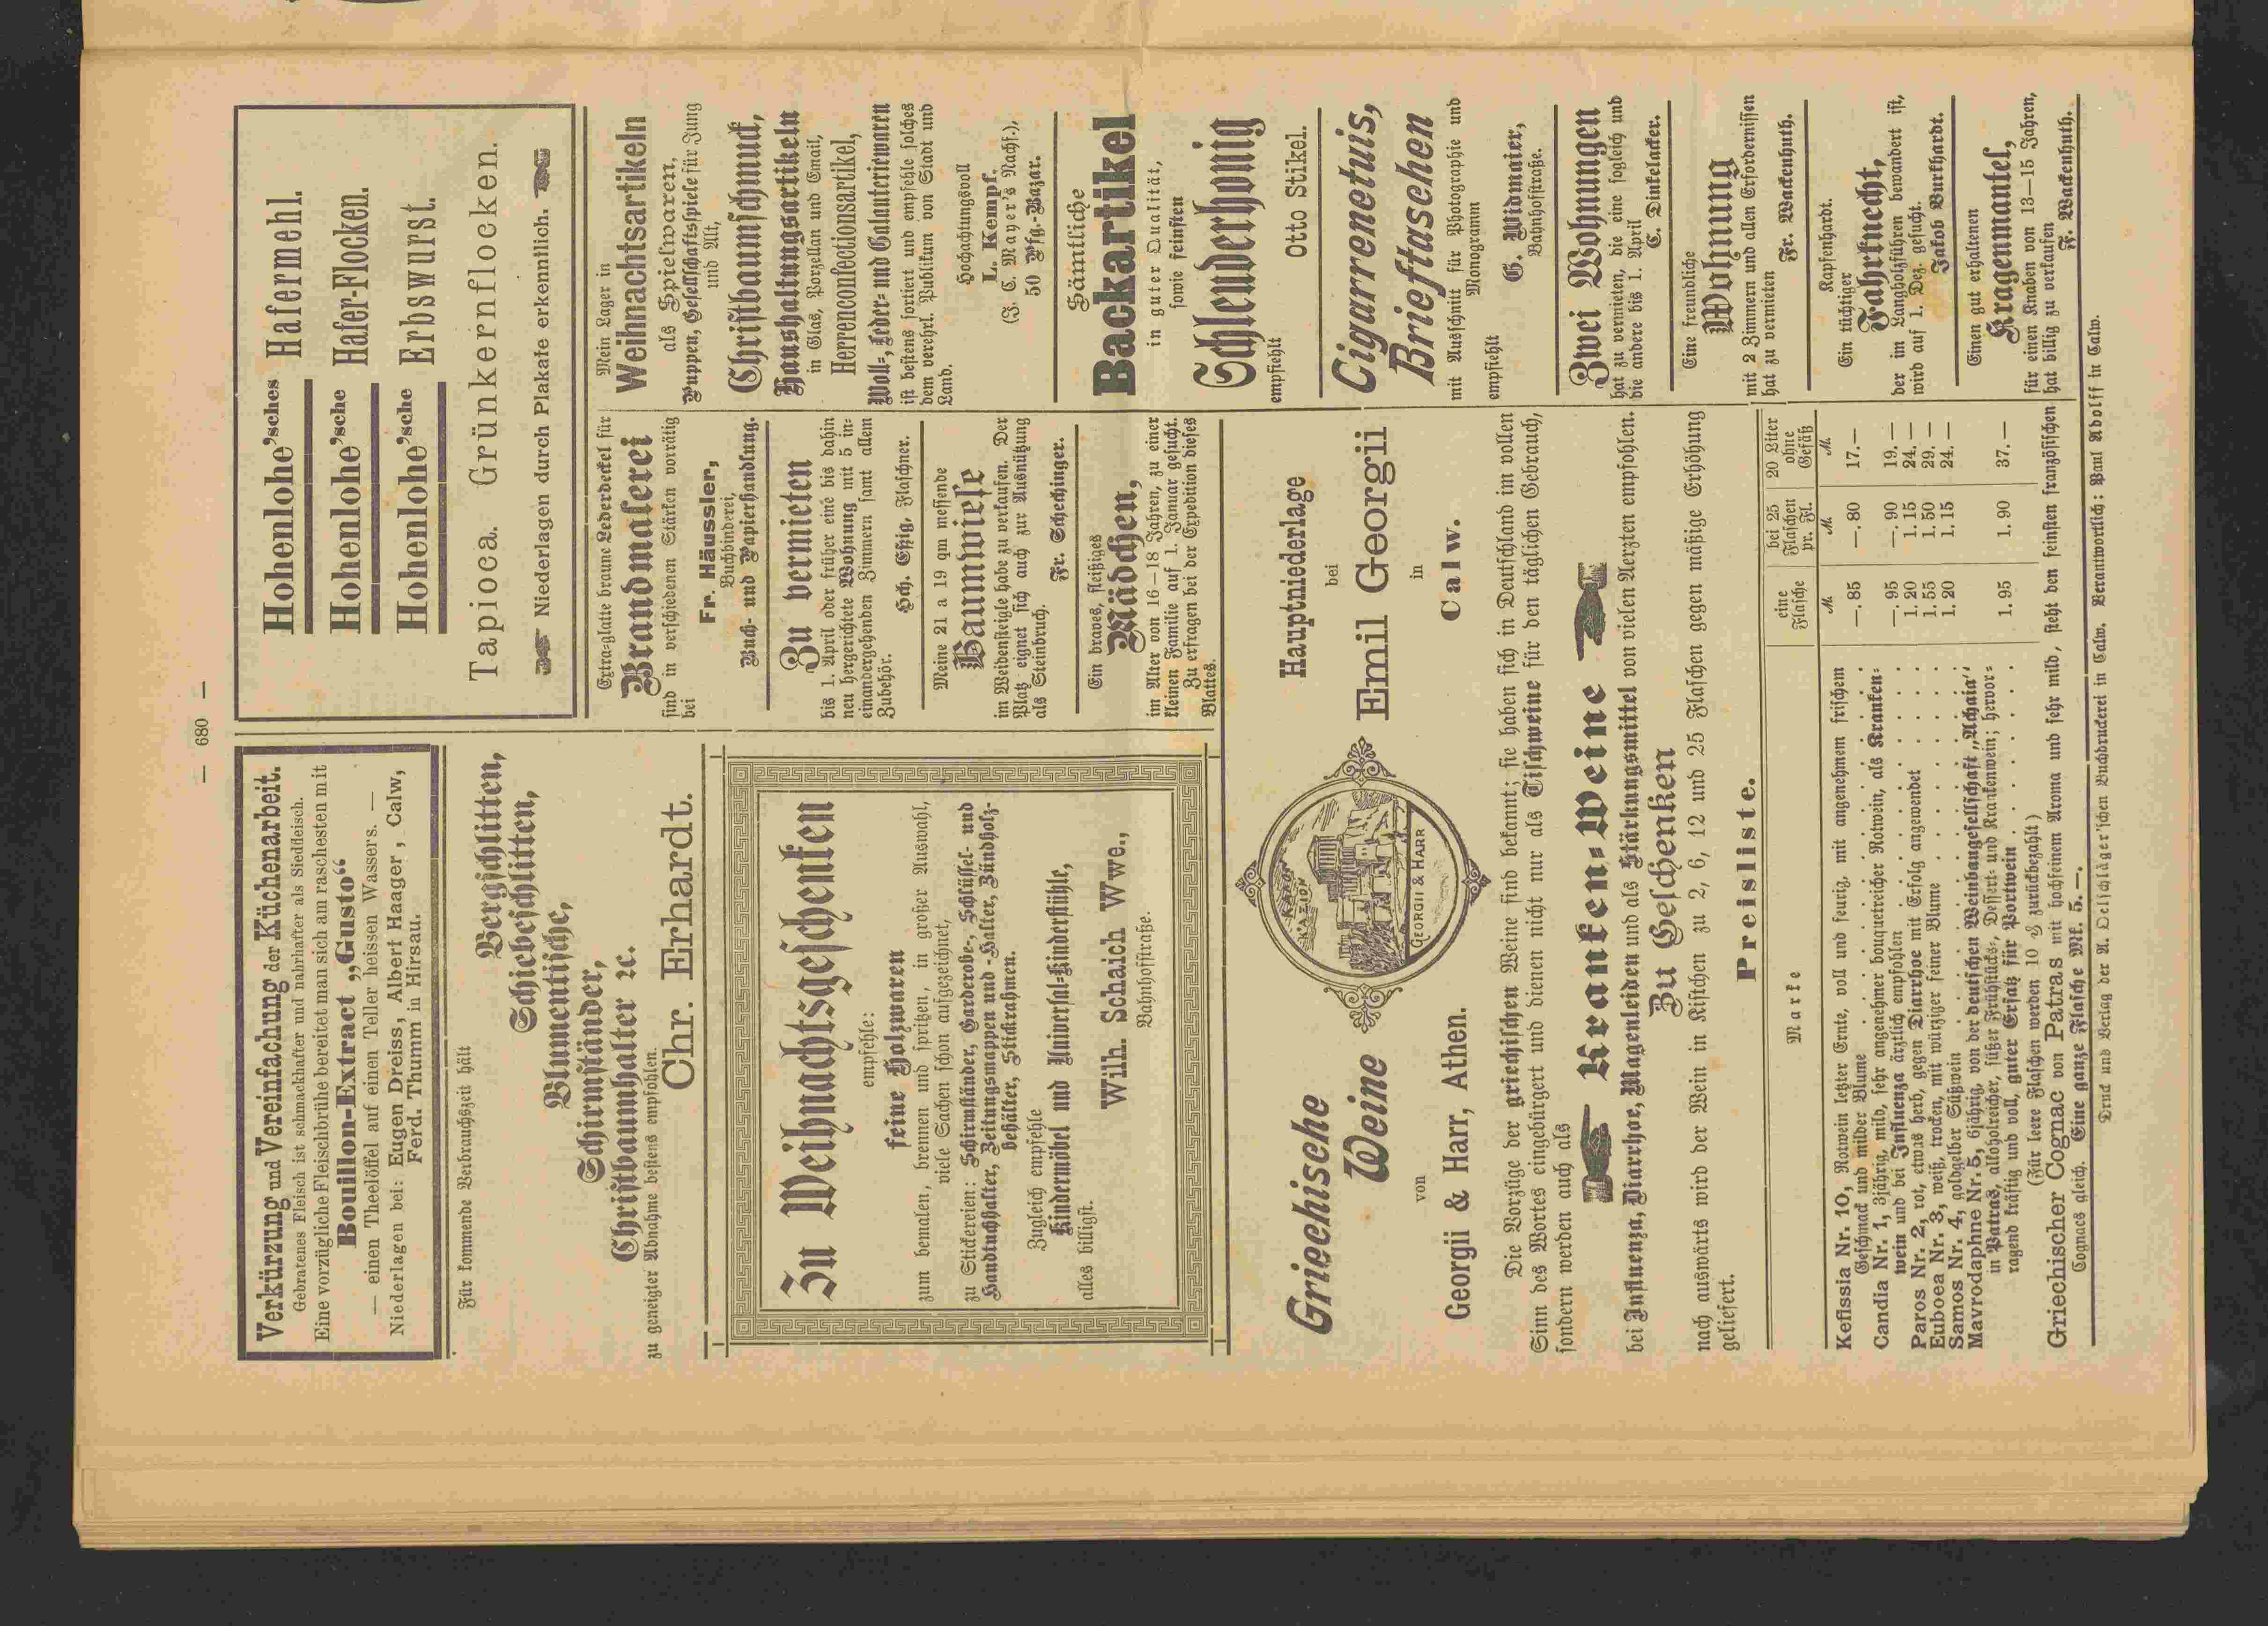 — 680 —
Verkürzung und Vereinfachung der Küchenarbeit.
Gebratenes Fleisch ist schmackhafter und nahrhafter als Siedfleisch.
Eine vorzügliche Fleischbrühe bereitet man sich am raschesten mit
Bouillon-Extract „Gusto“
— einen Theelöffel auf einen Teller heissen Wassers. —
Niederlagen bei: Eugen Dreiss, Albert Haager, Calw,
Ferd. Thumm in Hirsau.
Für kommende Verbrauchszeit hält
Bergschlitten,
Schiebeschlitten,
Blumentische,
Schirmständer,
Christbaumhalter ꝛc.
zu geneigter Abnahme bestens empfohlen.
Chr. Erhardt.
Zu Weihnachtsgeschenken
empfehle:
feine Holzwaren
zum bemalen, brennen und spritzen, in großer Auswahl,
viele Sachen schon aufgezeichnet,
zu Stickereien: Schirmständer, Garderobe-, Schlüssel- und
Handtuchhalter, Zeitungsmappen und -Halter, Zündholz-
behälter, Stickrahmen.
Zugleich empfehle
Kindermöbel und Universal-Kinderstühle,
alles billigst.
Wilh. Schaich Wwe.,
Bahnhofstraße.
Hohenlohe'sches Hafermehl.
Hohenlohe'sche Hafer-Flocken.
Hohenlohe'sche Erbswurst.
Tapioca. Grünkernflocken.
Niederlagen durch Plakate erkenntlich.
Extra-glatte braune Lederdeckel für
Brandmalerei
sind in verschiedenen Stärken vorrätig
bei
Fr. Häussler,
Buchbinderei,
Buch- und Papierhandlung.
Zu vermieten
bis 1. April oder früher eine bis dahin
neu hergerichtete Wohnung mit 5 in-
einandergehenden Zimmern samt allem
Zubehör.
Hch. Essig, Flaschner.
Meine 21 a 19 qm messende
Baumwiese
im Weidensteigle habe zu verkaufen. Der
Platz eignet sich auch zur Ausnützung
als Steinbruch.
Fr. Schechinger.
Ein braves, fleißiges
Mädchen,
im Alter von 16—18 Jahren, zu einer
kleinen Familie auf 1. Januar gesucht.
Zu erfragen bei der Expedition dieses
Blattes.
Mein Lager in
Weihnachtsartikeln
als Spielwaren,
Puppen, Gesellschaftsspiele für Jung
und Alt,
Christbaumschmuck,
Haushaltungsartikeln
in Glas, Porzellan und Email,
Herrenconfectionsartikel,
Woll-, Leder- und Galanteriewaren
ist bestens sortiert und empfehle solches
dem verehrl. Publikum von Stadt und
Land.
Hochachtungsvoll
L. Kempf.
(J. C. Mayer's Nachf.),
50 Pfg.-Bazar.
Sämtliche
Backartikel
in guter Qualität,
sowie feinsten
Schleuderhonig
empfiehlt
Otto Stikel.
Cigarrenetuis,
Brieftaschen
mit Ausschnitt für Photographie und
Monogramm
empfiehlt
G. Widmaier,
Bahnhofstraße.
Zwei Wohnungen
hat zu vermieten, die eine sogleich und
die andere bis 1. April
C. Dinkelacker.
Eine freundliche
Wohnung
mit 2 Zimmern und allen Erfordernissen
hat zu vermieten
Fr. Wackenhuth.
Kapfenhardt.
Ein tüchtiger
Fahrknecht,
der im Langholzführen bewandert ist,
wird auf 1. Dez. gesucht.
Jakob Burkhardt.
Einen gut erhaltenen
Kragenmantel,
für einen Knaben von 13—15 Jahren,
hat billig zu verkaufen
F. Wackenhuth.
Griechische
Weine
von
Georgii & Harr, Athen.
ΚΑΛΟΝ
ΚΑΖΙΟΝ
GEORGII & HARR
Hauptniederlage
bei
Emil Georgii
in
Calw.
Die Vorzüge der griechischen Weine sind bekannt; sie haben sich in Deutschland im vollen
Sinn des Wortes eingebürgert und dienen nicht nur als Tischweine für den täglichen Gebrauch,
sondern werden auch als
Kranken-Weine
bei Influenza, Diarrhoe, Magenleiden und als Stärkungsmittel von vielen Aerzten empfohlen.
Zu Geschenken
nach auswärts wird der Wein in Kistchen zu 2, 6, 12 und 25 Flaschen gegen mäßige Erhöhung
geliefert.
Preisliste.
Marke eine Flasche bei 25 Flaschen pr. Fl. 20 Liter ohne Gefäß
M. M. M.
Kefissia Nr. 10, Rotwein letzter Ernte, voll und feurig, mit angenehmem frischem
Geschmack und milder Blume —.85 —.80 17.—
Candia Nr. 1, 3jährig, mild, sehr angenehmer bouquetreicher Rotwein, als Kranken-
wein und bei Influenza ärztlich empfohlen —.95 —.90 19.—
Paros Nr. 2, rot, etwas herb, gegen Diarrhoe mit Erfolg angewendet 1.20 1.15 24.—
Euboea Nr. 3, weiß, trocken, mit würziger feiner Blume 1.55 1.50 29.—
Samos Nr. 4, goldgelber Süßwein 1.20 1.15 24.—
Mavrodaphne Nr. 5, 6jährig, von der deutschen Weinbaugesellschaft „Achaia“
in Patras, alkoholreicher, süßer Frühstücks-, Dessert- und Krankenwein; hervor-
ragend kräftig und voll, guter Ersatz für Portwein 1.95 1.90 37.—
(Für leere Flaschen werden 10 ₰ zurückbezahlt)
Griechischer Cognac von Patras mit hochfeinem Aroma und sehr mild, steht den feinsten französischen
Cognacs gleich. Eine ganze Flasche Mk. 5.—.
Druck und Verlag der A. Oelschläger'schen Buchdruckerei in Calw. Verantwortlich: Paul Adolff in Calw.